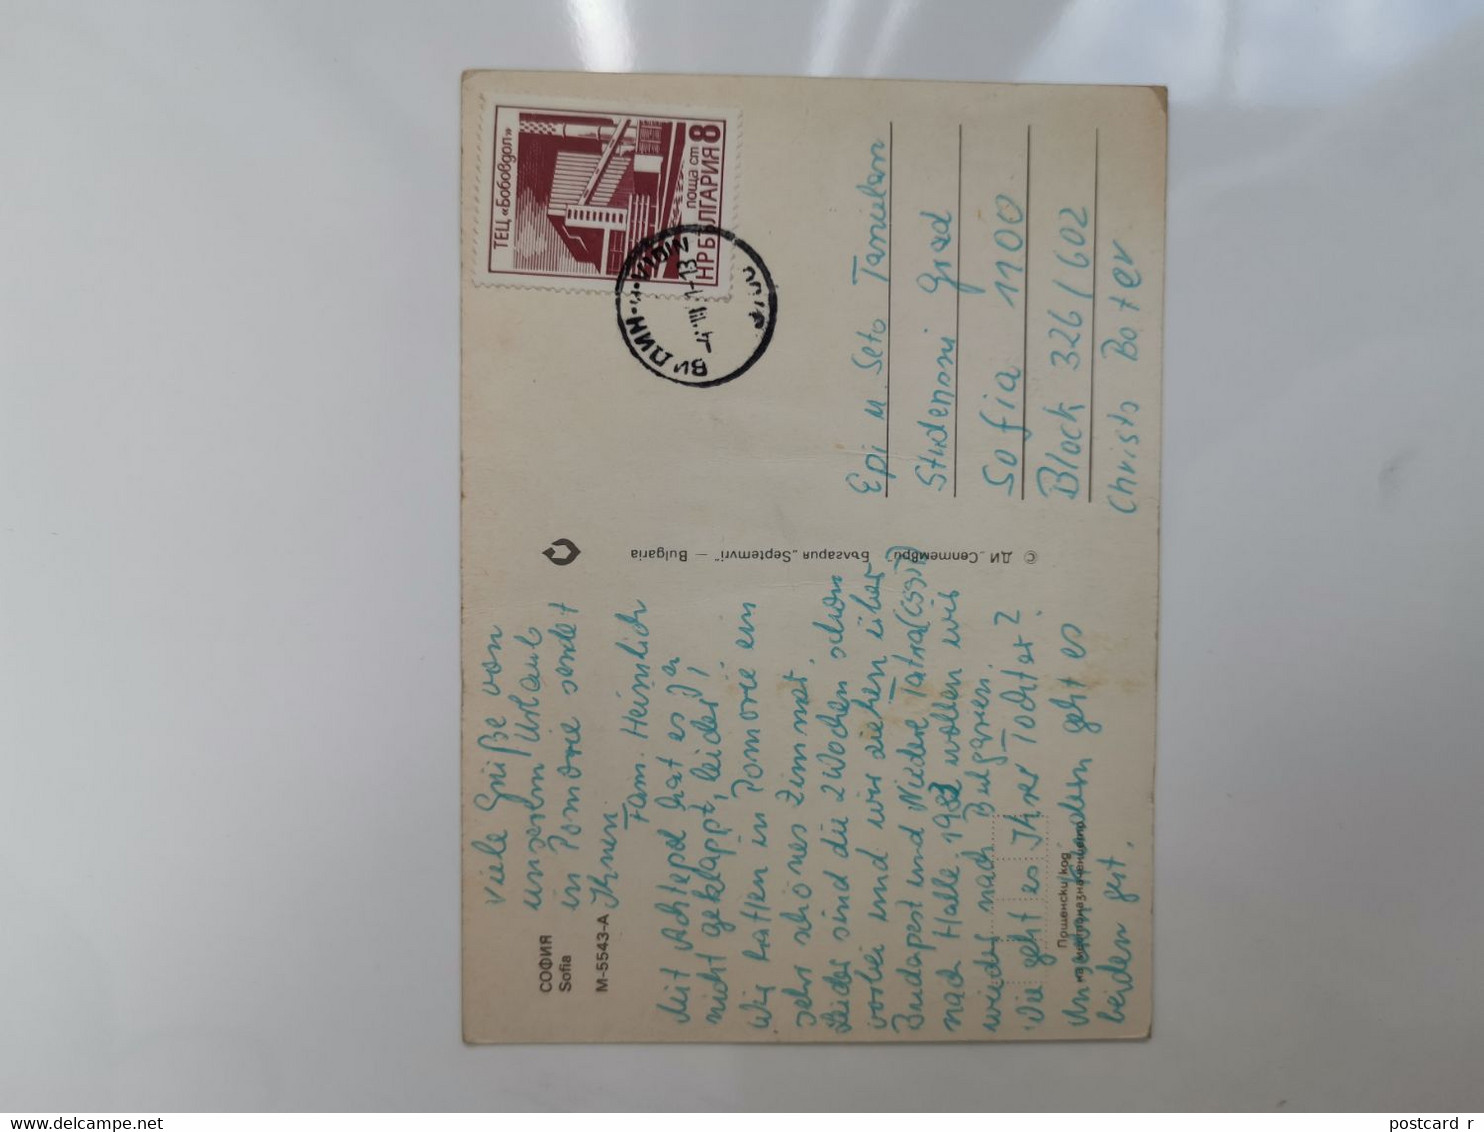 СОФИЯ
Sofia
М-5543-А
Viele Grüße von
unserem Urlaub
in Pomorie sendet
Ihnen
Fam. Heimlich
Mit Achtopol hat es ja
nicht geklappt, leider!
Wir hatten in Pomorie ein
sehr schönes Zimmer.
Leider sind die 2 Wochen schon
vorbei und wir ziehen über
Budapest und Niedere Tatra (ČSSR)
nach Halle. 1982 wollen wir
wieder nach Bulgarien.
Wie geht es Ihrer Tochter?
Unseren Kindern geht es
beiden gut.
Пощенски код
на местоназначението
© ДИ „Септември" България „Septemvri" – Bulgaria
ТЕЦ «Бобовдол»
поща ст 8
НР БЪЛГАРИЯ
ВИДИН · VIDIN
Epi u. Seto Tanielan
Studenski grad
Sofia 1100
Block 326/602
Christo Boter
postcard_r